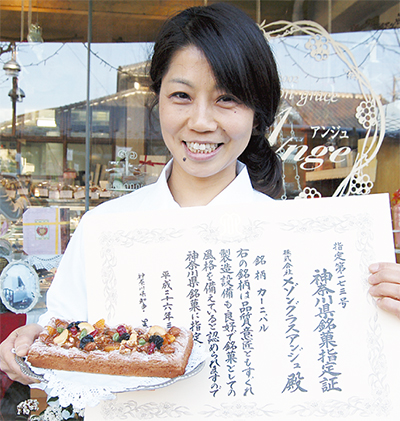 n grace
アンジュ
Ange
指定第一七三号
神奈川県銘菓指定証
株式会社メゾングラスアンジュ殿
銘柄 カーニバル
右の銘柄は品質意匠ともすぐれ
製造設備も良好で銘菓としての
風格を備えていると認められますので
神奈川県銘菓に指定
平成二十六年
神奈川県知事